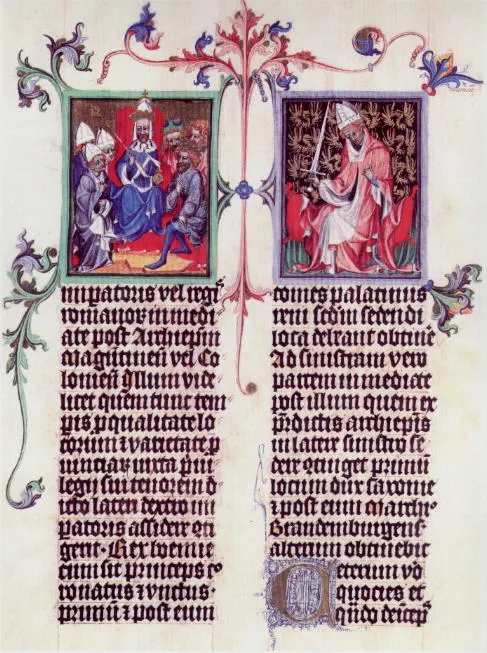 mpatoris vel reg̃
romanoꝝ in medi
ate post Archiepm̃
Magũtineñ vel Co
lonieñ Illum vide
licet quem tunc tem
pis p qualitate lo
corum ⁊ varietate p
unciaꝝ iuxta pͥui
legij sui tenorem in
dc̃to latere dextro im
patoris assidere cõti
gerit· Rex boemie
cum sit princeps co
ronatus ⁊ vnctus
primũ ⁊ post eum
comes palatinus
reni scdm̃ sedendi
loca debeant obtinẽ
Ad sinistram vero
partem immediate
post illum quem ex
p̃dictis archiep̃is
in latere sinistro se
dere cõtiget primũ
locum dux saxonie
⁊ post eum marchͥo
Brandemburgens̃
alterum obtinebit
Ceterum vo
quocies et
qñdo deĩcep̃